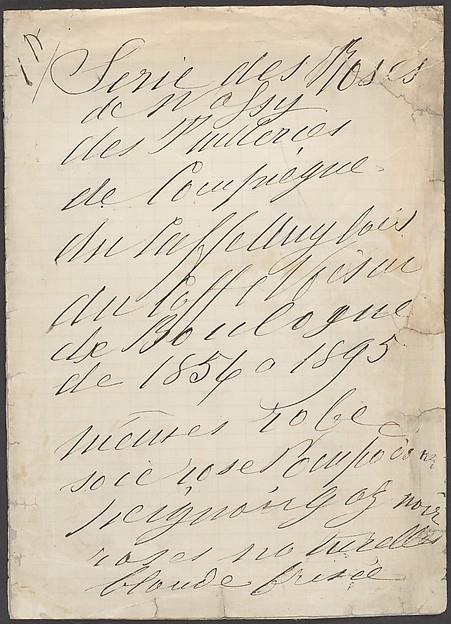 Serie des Roses
de Passy
des Tuileries
de Compiègne
du Caffe Anglais
du Caffe
de Boulogne
de 1856 a 1895
mêmes robe
soie rose Pompadour
peignoir gaz noir
roses naturelles
blonde frisée